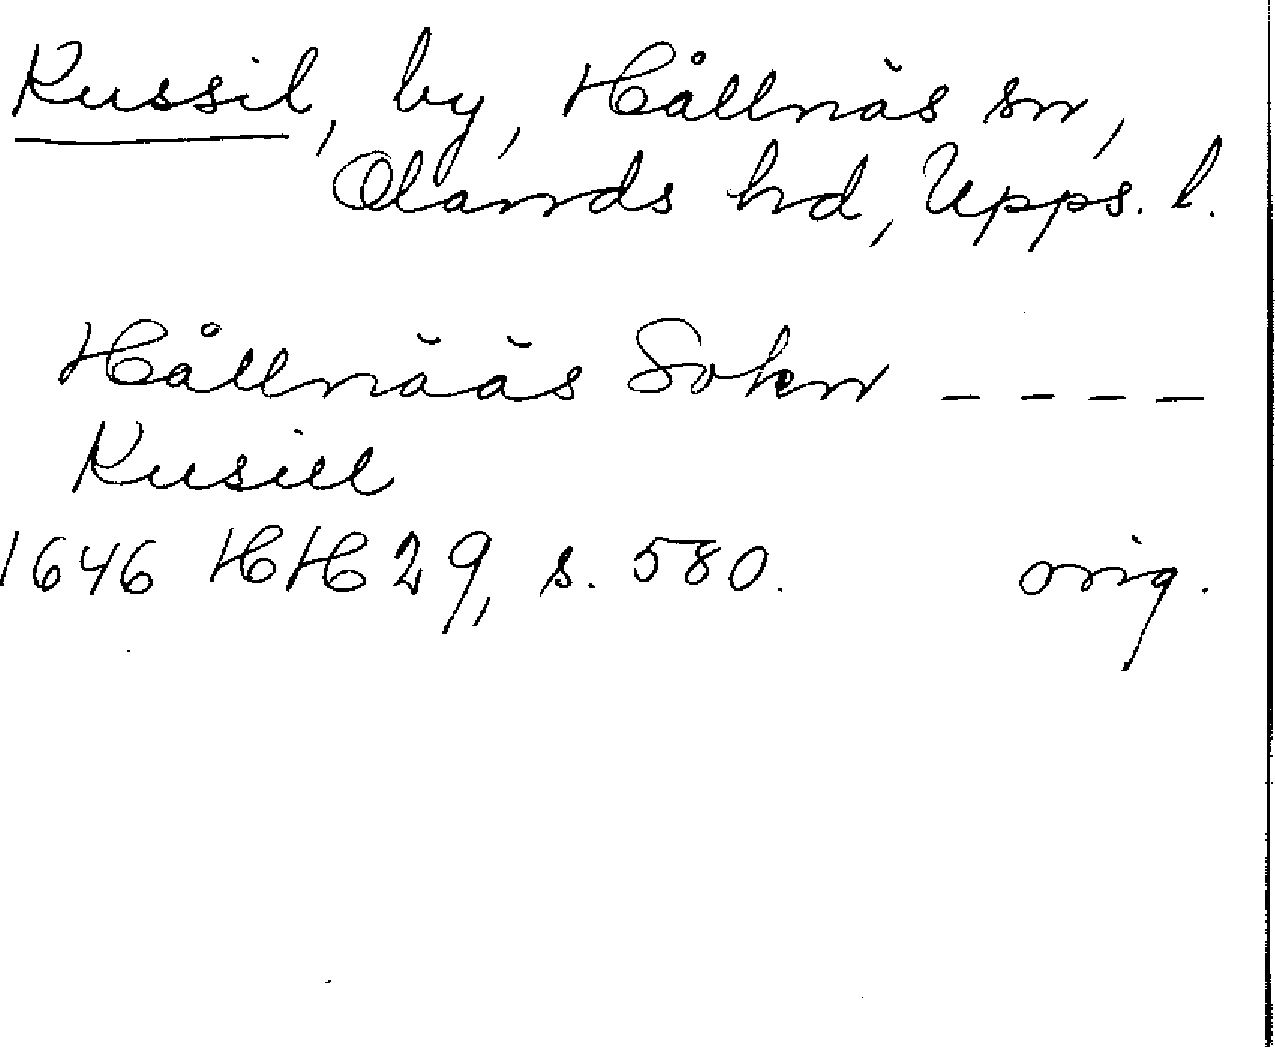 Russil, by, Hållnäs sn,
Olands hd, Upps. l.
Hållnääs Sokn - - - -
Rusill
1646 HH 29, s. 580. orig.